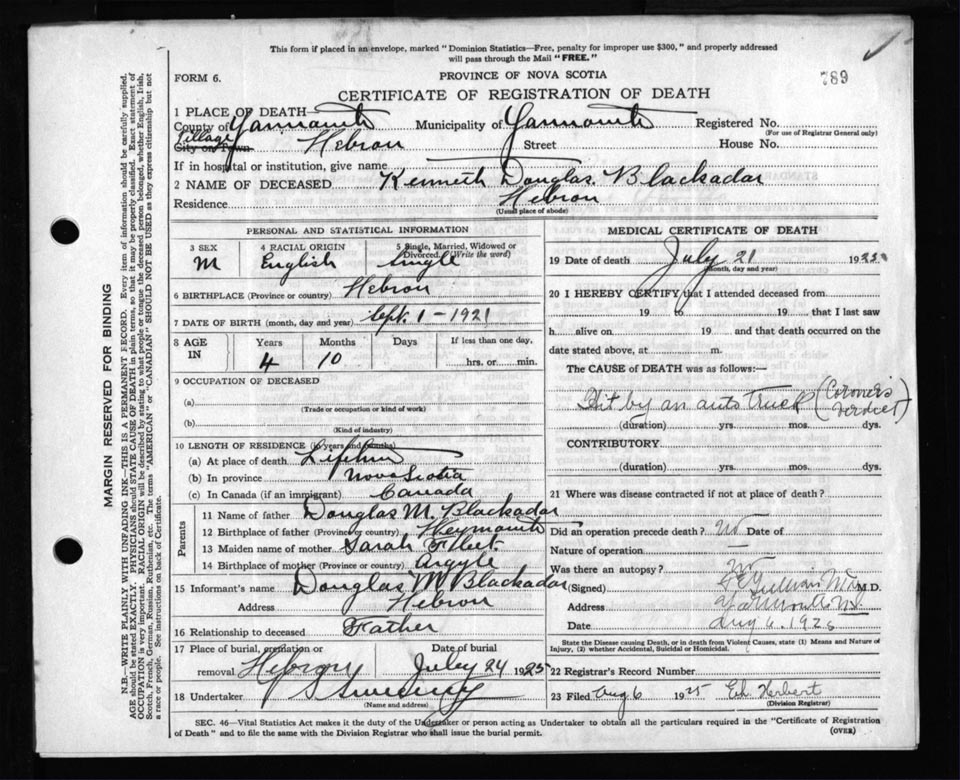 This form if placed in an envelope, marked "Dominion Statistics—Free, penalty for improper use $300," and properly addressed
will pass through the Mail "FREE."
FORM 6.
PROVINCE OF NOVA SCOTIA
789
CERTIFICATE OF REGISTRATION OF DEATH
1 PLACE OF DEATH
County of Yarmouth Municipality of Yarmouth Registered No.
(For use of Registrar General only)
Village
City or Town Hebron Street House No.
If in hospital or institution, give name
2 NAME OF DECEASED Kenneth Douglas Blackadar
Residence Hebron
(Usual place of abode)
PERSONAL AND STATISTICAL INFORMATION
3 SEX 4 RACIAL ORIGIN 5 Single, Married, Widowed or Divorced. (Write the word)
M English Single
6 BIRTHPLACE (Province or country) Hebron
7 DATE OF BIRTH (month, day and year) Sept. 1 - 1921
8 AGE IN Years Months Days If less than one day,
4 10 hrs. or min.
9 OCCUPATION OF DECEASED
(a)
(Trade or occupation or kind of work)
(b)
(Kind of industry)
10 LENGTH OF RESIDENCE (in years and months)
(a) At place of death Lifetime
(b) In province Nova Scotia
(c) In Canada (if an immigrant) Canada
Parents
11 Name of father Douglas M. Blackadar
12 Birthplace of father (Province or country) Weymouth
13 Maiden name of mother Sarah Fleet
14 Birthplace of mother (Province or country) Argyle
15 Informant's name Douglas M Blackadar
Address Hebron
16 Relationship to deceased Father
17 Place of burial, cremation or removal Date of burial
Hebron July 24 1925
18 Undertaker Sweeney
(Name and address)
MEDICAL CERTIFICATE OF DEATH
19 Date of death July 21 1925
(Month, day and year)
20 I HEREBY CERTIFY that I attended deceased from
19 to 19 that I last saw
h alive on 19 and that death occurred on the
date stated above, at m.
The CAUSE of DEATH was as follows:—
Hit by an auto truck (Coroner's verdict)
(duration) yrs. mos. dys.
CONTRIBUTORY.
(duration) yrs. mos. dys.
21 Where was disease contracted if not at place of death?
Did an operation precede death? No Date of
Nature of operation —
Was there an autopsy? No
(Signed) M.D.
Address Yarmouth N.S.
Date Aug 6. 1925
State the Disease causing Death, or in death from Violent Causes, state (1) Means and Nature of
Injury, (2) whether Accidental, Suicidal or Homicidal.
22 Registrar's Record Number
23 Filed Aug 6 1925 Herbert
(Division Registrar)
SEC. 46—Vital Statistics Act makes it the duty of the Undertaker or person acting as Undertaker to obtain all the particulars required in the "Certificate of Registration
of Death" and to file the same with the Division Registrar who shall issue the burial permit.
(OVER)
MARGIN RESERVED FOR BINDING
N.B.—WRITE PLAINLY WITH UNFADING INK—THIS IS A PERMANENT RECORD. Every item of information should be carefully supplied.
AGE should be stated EXACTLY. PHYSICIANS should STATE CAUSE OF DEATH in plain terms, so that it may be properly classified. Exact statement of
OCCUPATION is very important. RACIAL ORIGIN will be described by stating to what people or tongue the deceased person belonged, whether English, Irish,
Scotch, French, German, Russian, Ruthenian, etc. The terms "AMERICAN" or "CANADIAN" SHOULD NOT BE USED as they express citizenship but not
a race or people. See instructions on back of Certificate.